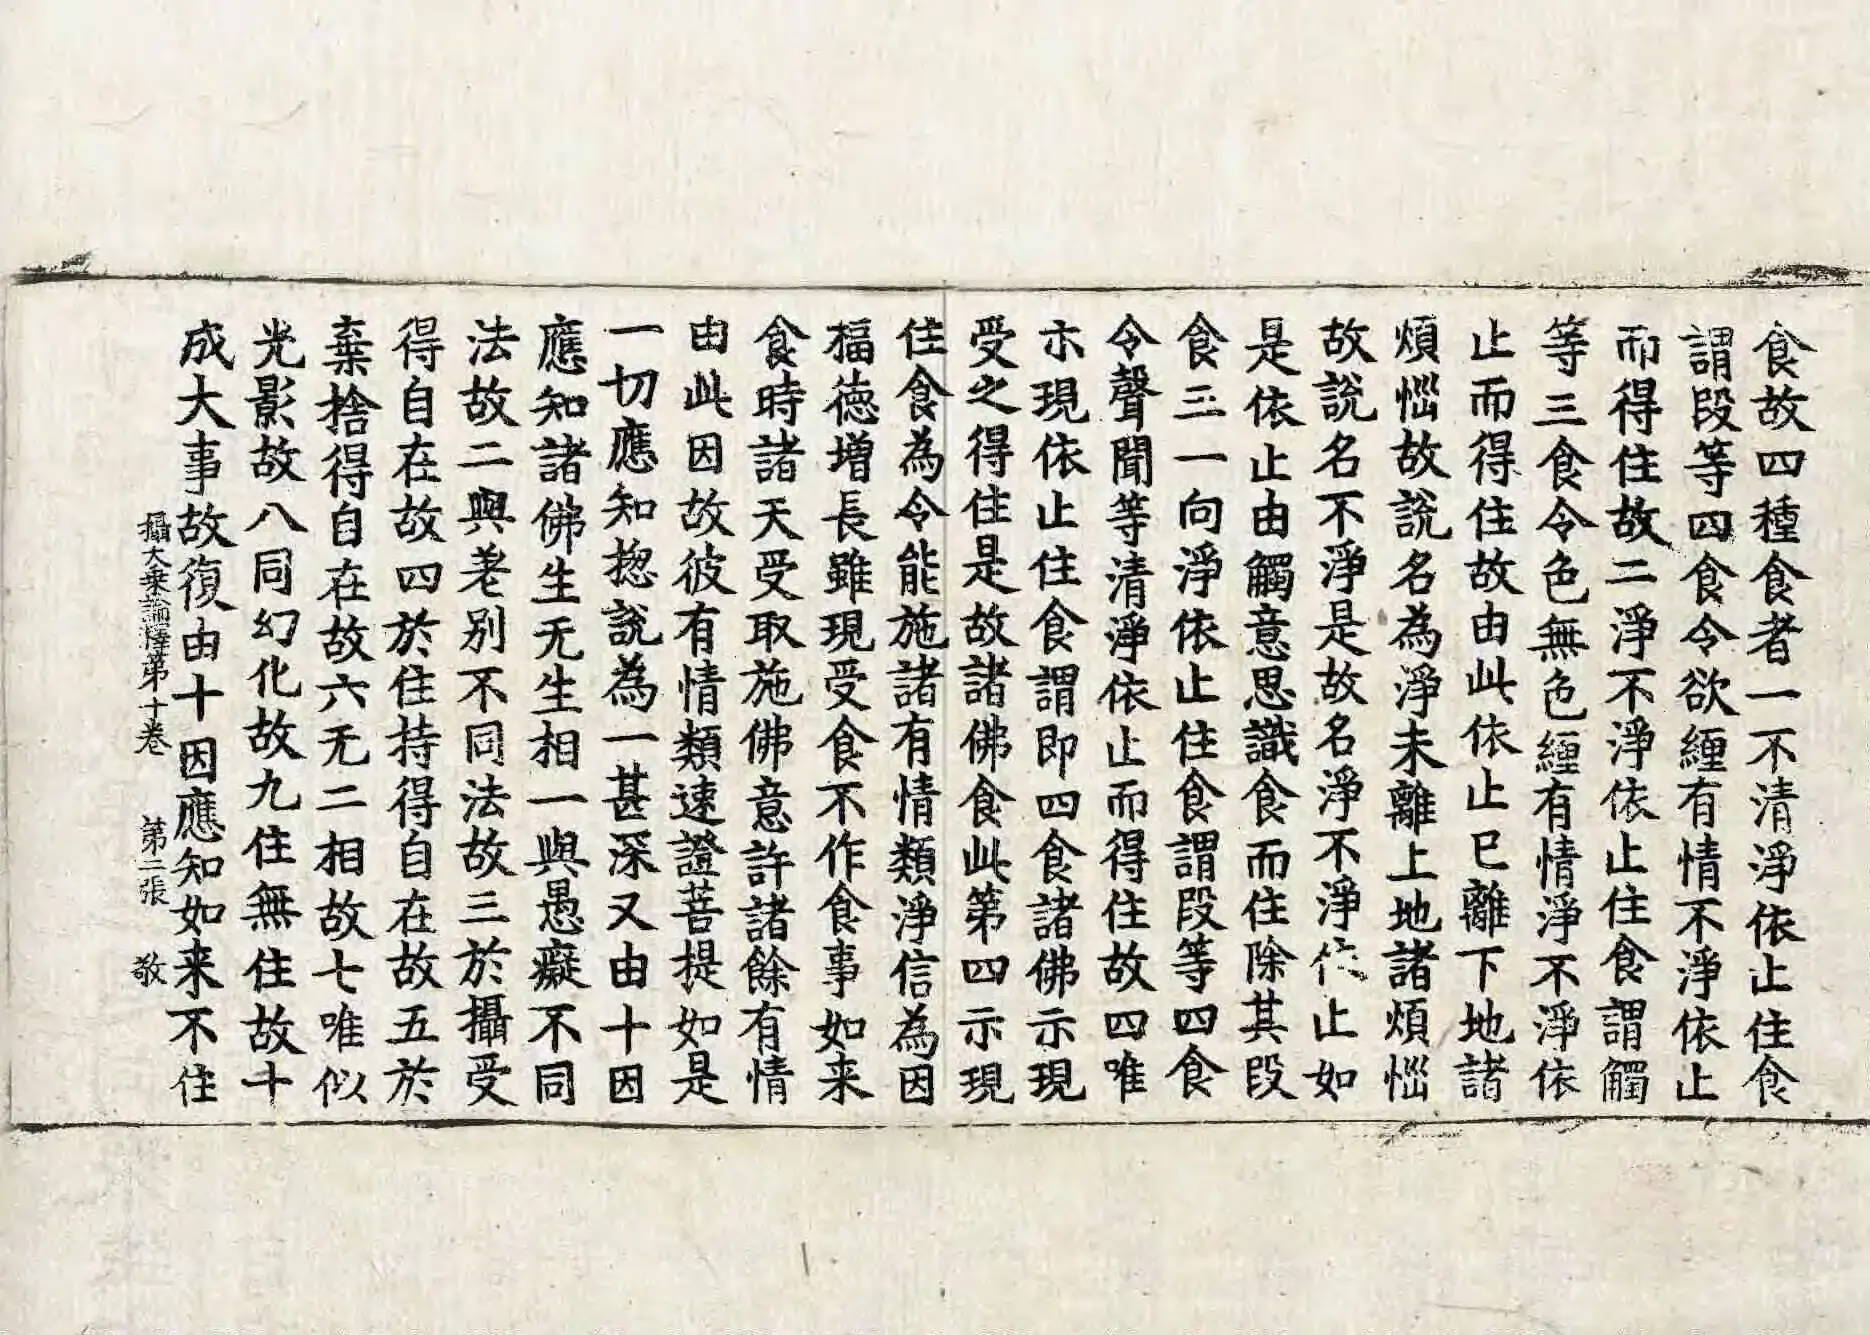 食故四種食者一不清淨依止住食
謂段等四食令欲纏有情不淨依止
而得住故二淨不淨依止住食謂觸
等三食令色無色纏有情淨不淨依
止而得住故由此依止已離下地諸
煩惱故說名為淨未離上地諸煩惱
故說名不淨是故名淨不淨依止如
是依止由觸意思識食而住除其段
食三一向淨依止住食謂段等四食
令聲聞等清淨依止而得住故四唯
示現依止住食謂即四食諸佛示現
受之得住是故諸佛食此第四示現
住食為令能施諸有情類淨信為因
福德增長雖現受食不作食事如来
食時諸天受取施佛意許諸餘有情
由此因故彼有情類速證菩提如是
一切應知揔說為一甚深又由十因
應知諸佛生无生相一與愚癡不同
法故二與差別不同法故三於攝受
得自在故四於住持得自在故五於
棄捨得自在故六无二相故七唯似
光影故八同幻化故九住無住故十
成大事故復由十因應知如来不住
攝大乗論釋第十卷 第二張 敬